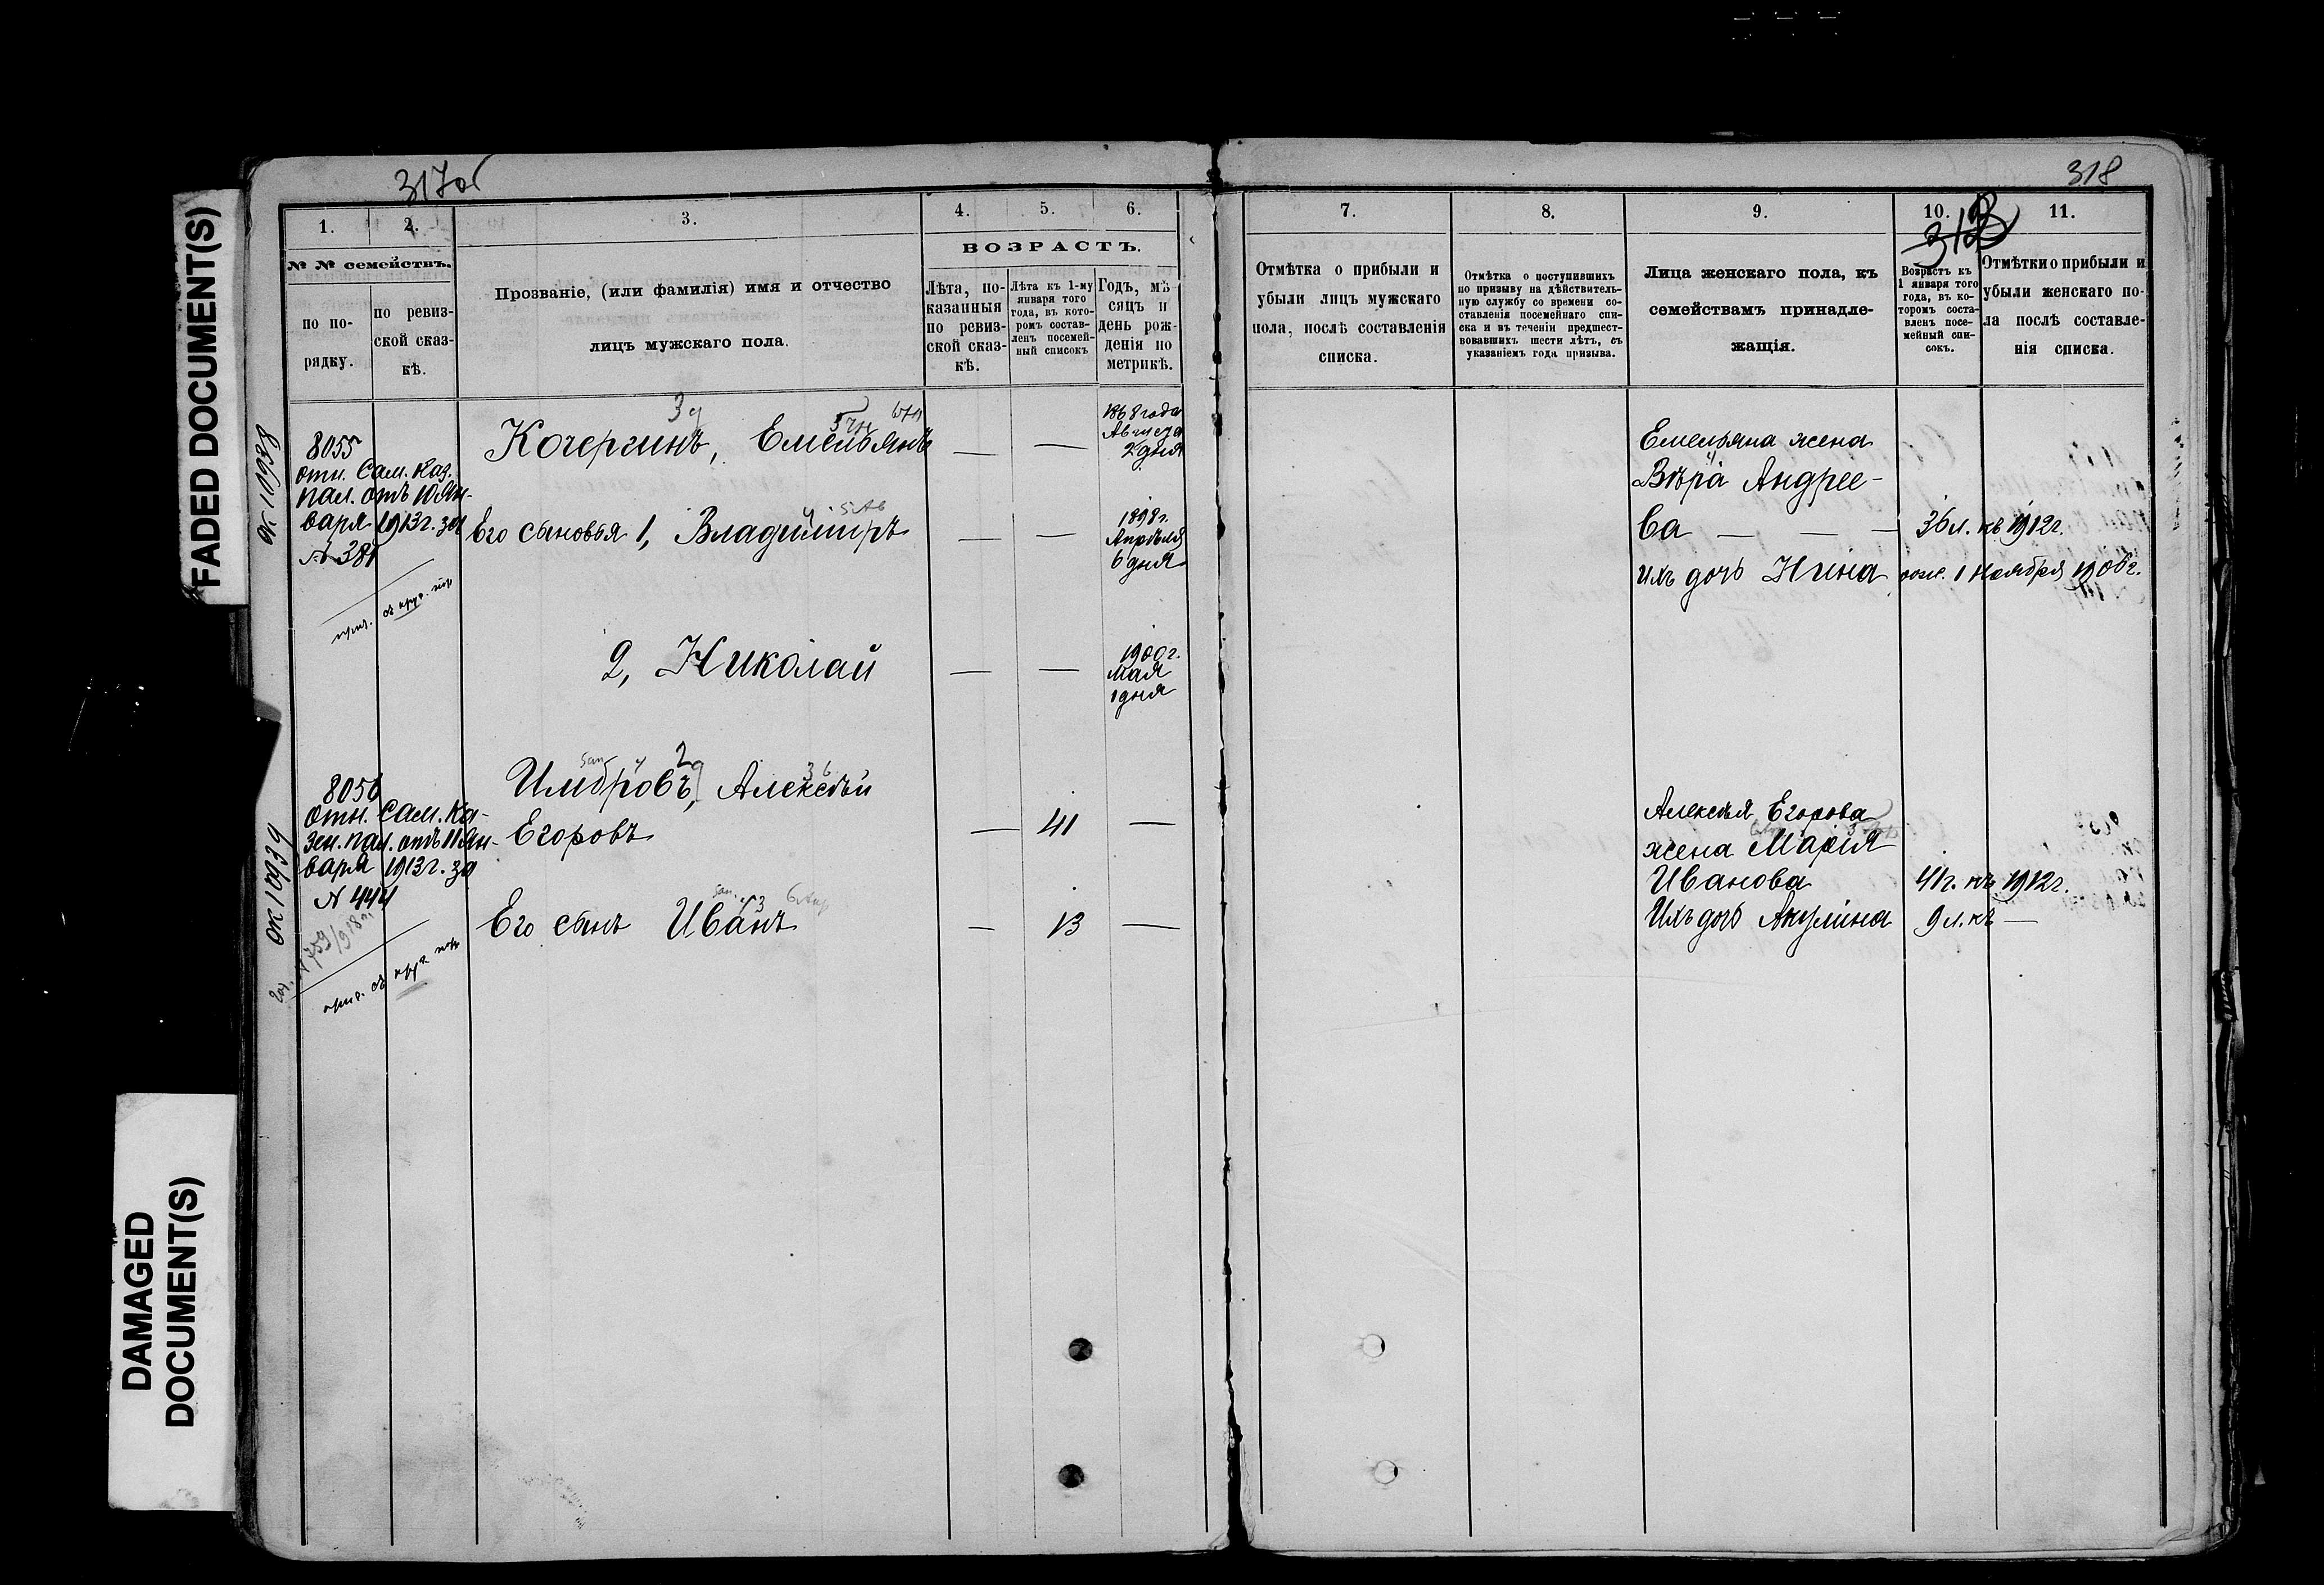 FADED DOCUMENT(S)
DAMAGED
DOCUMENT(S)
317об
1.
2.
3.
4.
5.
6.
№ № семействъ.
по по-
рядку.
по ревиз-
ской сказ-
кѣ.
Прозваніе, (или фамилія) имя и отчество
лицъ мужскаго пола.
ВОЗРАСТЪ.
Лѣта, по-
казанныя
по ревиз-
ской сказ-
кѣ.
Лѣта къ 1-му
января того
года, въ кото-
ромъ состав-
ленъ посемей-
ный списокъ
Годъ, мѣ-
сяцъ и
день рож-
денія по
метрикѣ.
ок 10938
8055
отн. Сам. Каз.
пал. отъ 10 Ян-
варя 1913г. за
№ 381
Кочергинъ, Емельянъ
— —
1868 года
Августа
2 дня
Его сыновья 1, Владимиръ
— —
1898г.
Апрѣля
6 дня
2, Николай
— —
1900г.
Мая
1 дня
ок 10939
8056
отн. Сам. Ка-
зен. пал. отъ 11 Ян-
варя 1913г. за
№ 444
Алексѣй
Егоровъ
— 41 —
Его сынъ Иванъ
— 13 —
318
7.
8.
9.
10.
11.
Отмѣтка о прибыли и
убыли лицъ мужскаго
пола, послѣ составленія
списка.
Отмѣтка о поступившихъ
по призыву на дѣйствитель-
ную службу со времени со-
ставленія посемейнаго спи-
ска и въ теченіи предшест-
вовавшихъ шести лѣтъ, съ
указаніемъ года призыва.
Лица женскаго пола, къ
семействамъ принадле-
жащія.
Возрастъ къ
1 января того
года, въ ко-
торомъ соста-
вленъ посе-
мейный спи-
сокъ.
Отмѣтки о прибыли и
убыли женскаго по-
ла послѣ составле-
нія списка.
Емельяна жена
Вѣра Андрее-
ва — — — 36 л. къ 1912г.
Ихъ дочь Нина рожд. 1 Ноября 1906г.
Алексѣя Егорова
жена Марія
Иванова 41г. къ 1912г.
Ихъ дочь Акулина 9 л. къ —